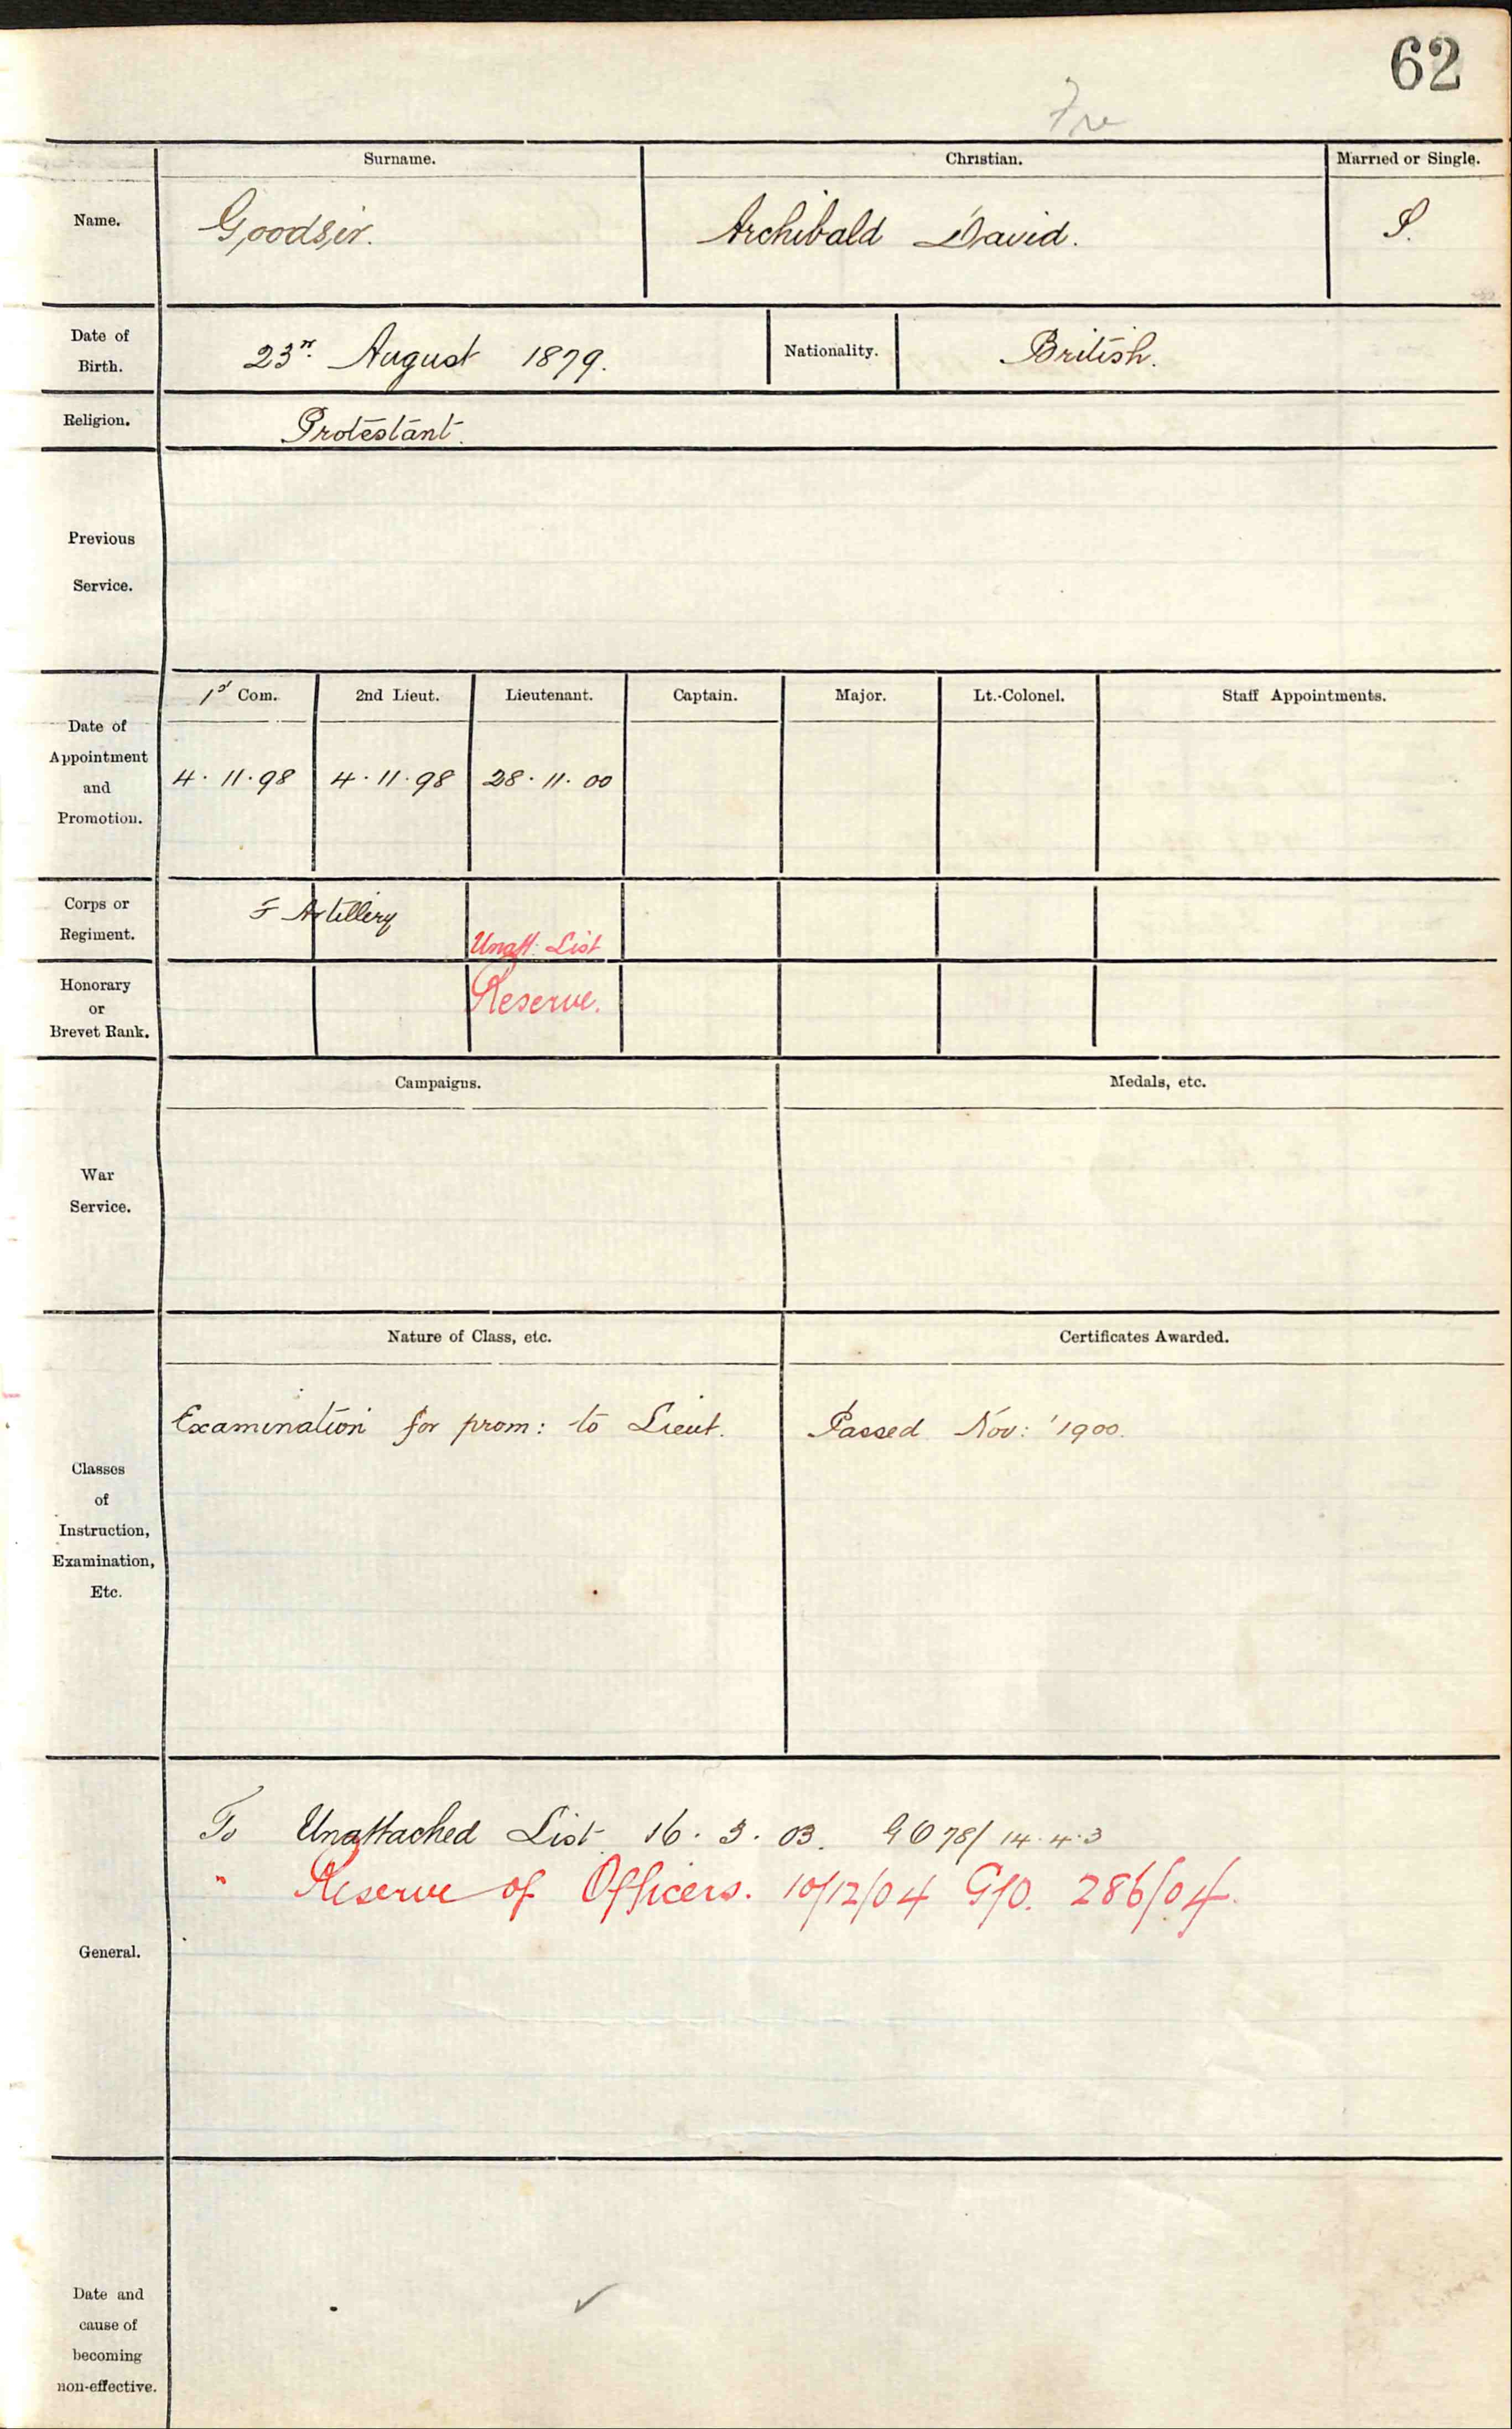 62
Surname. Christian. Married or Single.
Name. Goodsir. Archibald David. S.
Date of Birth. 23rd. August 1879. Nationality. British.
Religion. Protestant.
Previous
Service.
1st Com. 2nd Lieut. Lieutenant. Captain. Major. Lt.-Colonel. Staff Appointments.
Date of
Appointment
and
Promotion.
4. 11. 98 4. 11. 98 28. 11. 00
Corps or
Regiment.
F Artillery
Unatt: List
Honorary
or
Brevet Rank.
Reserve.
Campaigns. Medals, etc.
War
Service.
Nature of Class, etc. Certificates Awarded.
Examination for prom: to Lieut. Passed Nov: '1900.
Classes
of
Instruction,
Examination,
Etc.
To Unattached List 16. 3. 03. GO 78/ 14.4.3
" Reserve of Officers. 10/12/04 G/O. 286/04.
General.
Date and
cause of
becoming
non-effective.